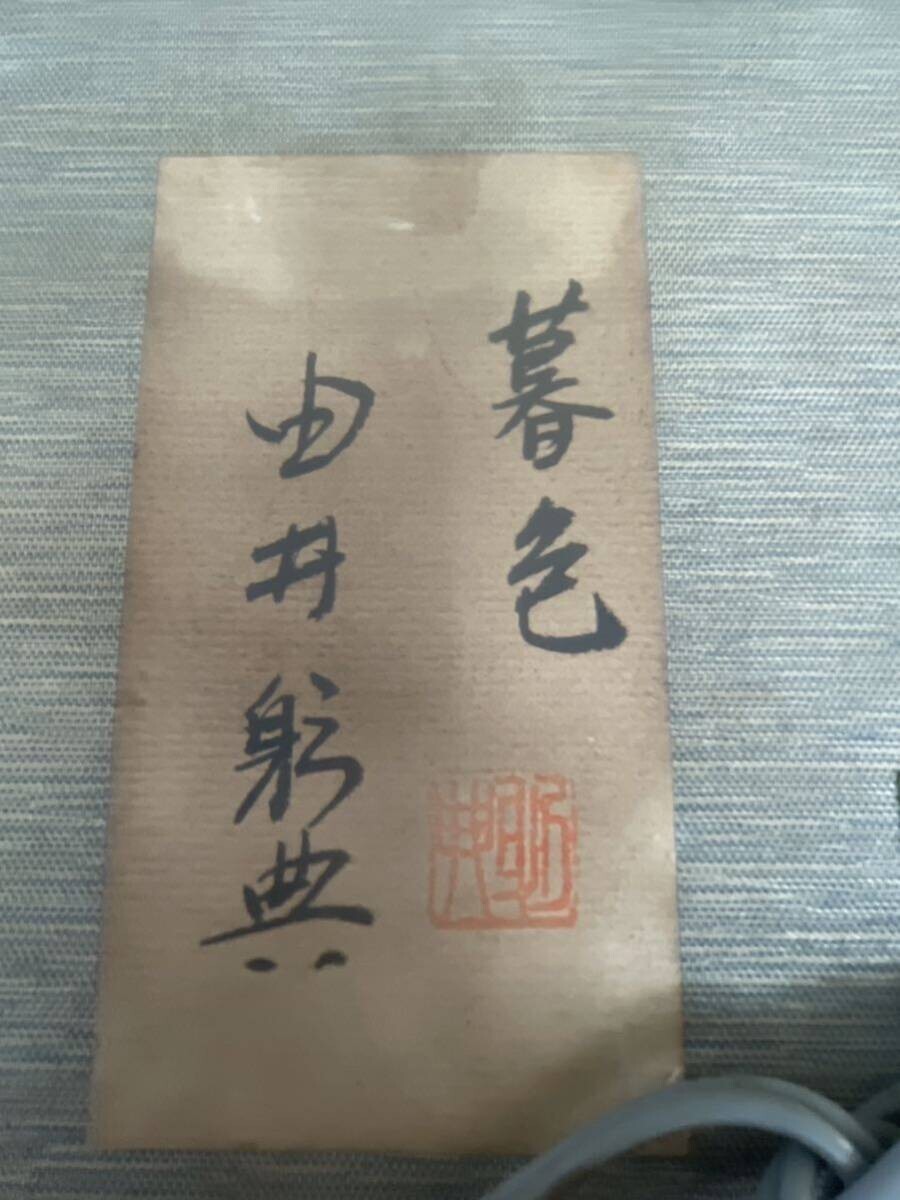 暮色
由井躬典